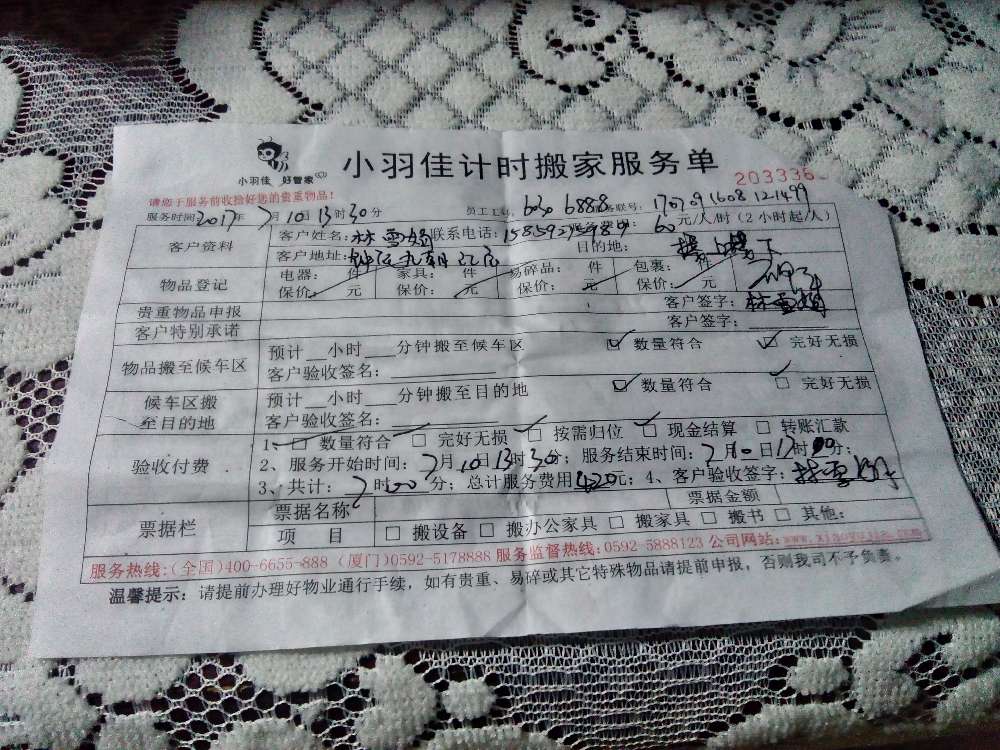 小羽佳 好管家
小羽佳计时搬家服务单
203336
请您于服务前收捡好您的贵重物品！
服务时间2017年7月10日13时30分 员工工号: 630 6888 服务联号: 170709 1608 12-1499
客户资料 客户姓名: 林雪娟 联系电话: 60元/人/时（2小时起/人）
客户地址: 目的地: 楼上楼下
物品登记 电器: 件 家具: 件 易碎品: 件 包裹: 件
保价: 元 保价: 元 保价: 元 保价: 元
贵重物品申报 客户签字: 林雪娟
客户特别承诺 客户签字:
物品搬至候车区 预计__小时___分钟搬至候车区 ☑ 数量符合 ☑ 完好无损
客户验收签名:
候车区搬至目的地 预计__小时___分钟搬至目的地 ☑ 数量符合 ☑ 完好无损
客户验收签名:
验收付费 1、☑ 数量符合 ☑ 完好无损 ☑ 按需归位 ☑ 现金结算 □ 转账汇款
2、服务开始时间: 7月10日13时30分; 服务结束时间: 7月10日 时 分;
3、共计: 时00分; 总计服务费用420元; 4、客户验收签字: 林雪娟
票据栏 票据名称 票据金额
项 目 □ 搬设备 □ 搬办公家具 □ 搬家具 □ 搬书 □ 其他:
服务热线:(全国)400-6655-888 (厦门)0592-5178888 服务监督热线:0592-5888123 公司网站:
温馨提示: 请提前办理好物业通行手续，如有贵重、易碎或其它特殊物品请提前申报，否则我司不予负责。